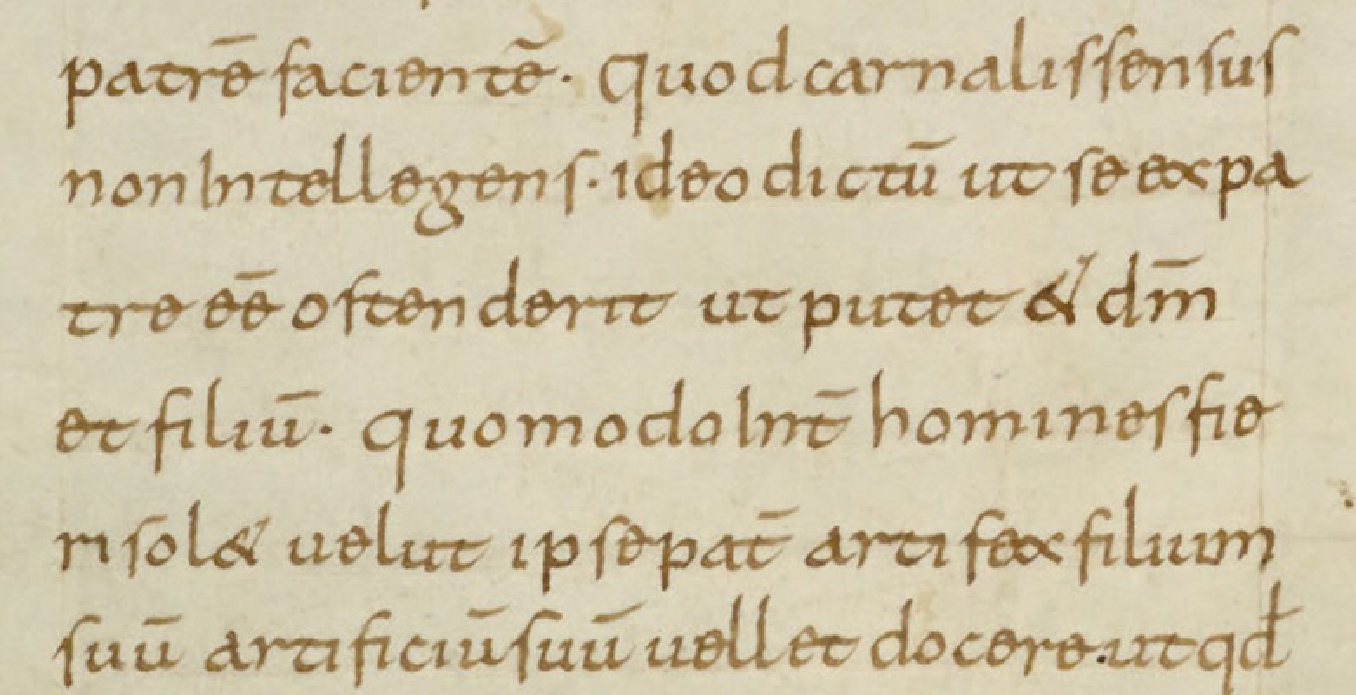 patrē facientē· quod carnalis sensus
non intellegens· ideo dictū ut se ex pa
tre eē ostenderit ut putet & dm̄
et filiū· quomodo int̄ homines fie
ri sol& uelut ipse pat̄ artifex filium
suū artificiū suū uellet docere· ut qđ